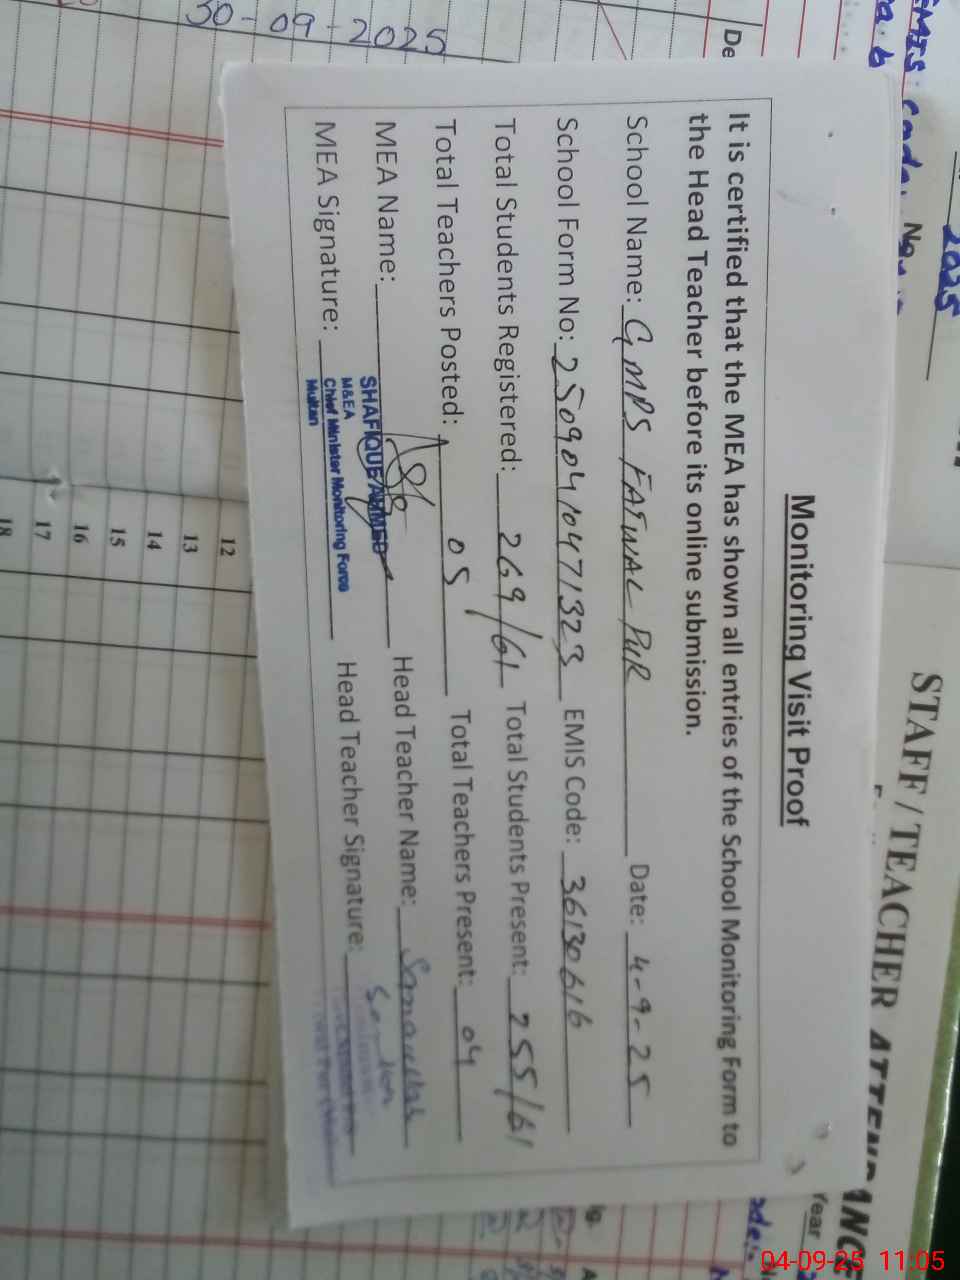 Monitoring Visit Proof
It is certified that the MEA has shown all entries of the School Monitoring Form to
the Head Teacher before its online submission.
School Name: GMPS FAIWAL PUR Date: 4-9-25
School Form No: 25090410471323 EMIS Code: 36130616
Total Students Registered: 269/61 Total Students Present: 255/61
Total Teachers Posted: 05 Total Teachers Present: 04
MEA Name: Head Teacher Name:
MEA Signature: Head Teacher Signature:
SHAFIQUE AHMED
M&EA
Chief Minister Monitoring Force
Multan
STAFF / TEACHER ATTENDANCE
Year
2025
EMIS Code No
De
30-09-2025
12
13
14
15
16
17
18
04-09-25 11:05